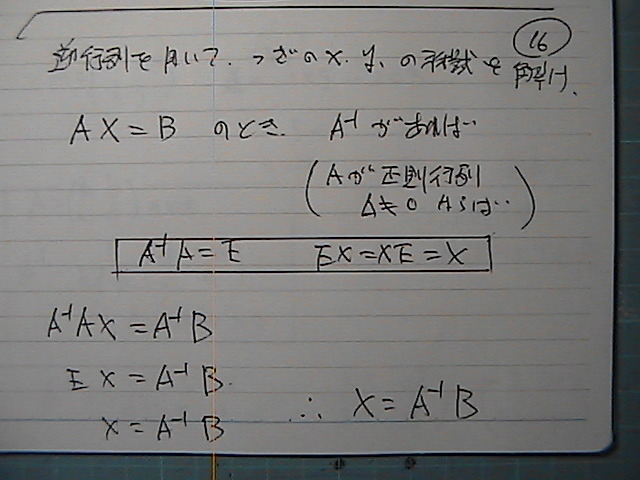 16
逆行列を用いて.つぎのx.y.の 式を解け.
AX=B のとき. A⁻¹があれば…
(Aが正則行列
Δ≠0 ならば…)
A⁻¹A=E EX=XE=X
A⁻¹AX=A⁻¹B
EX=A⁻¹B.
X=A⁻¹B ∴ X=A⁻¹B